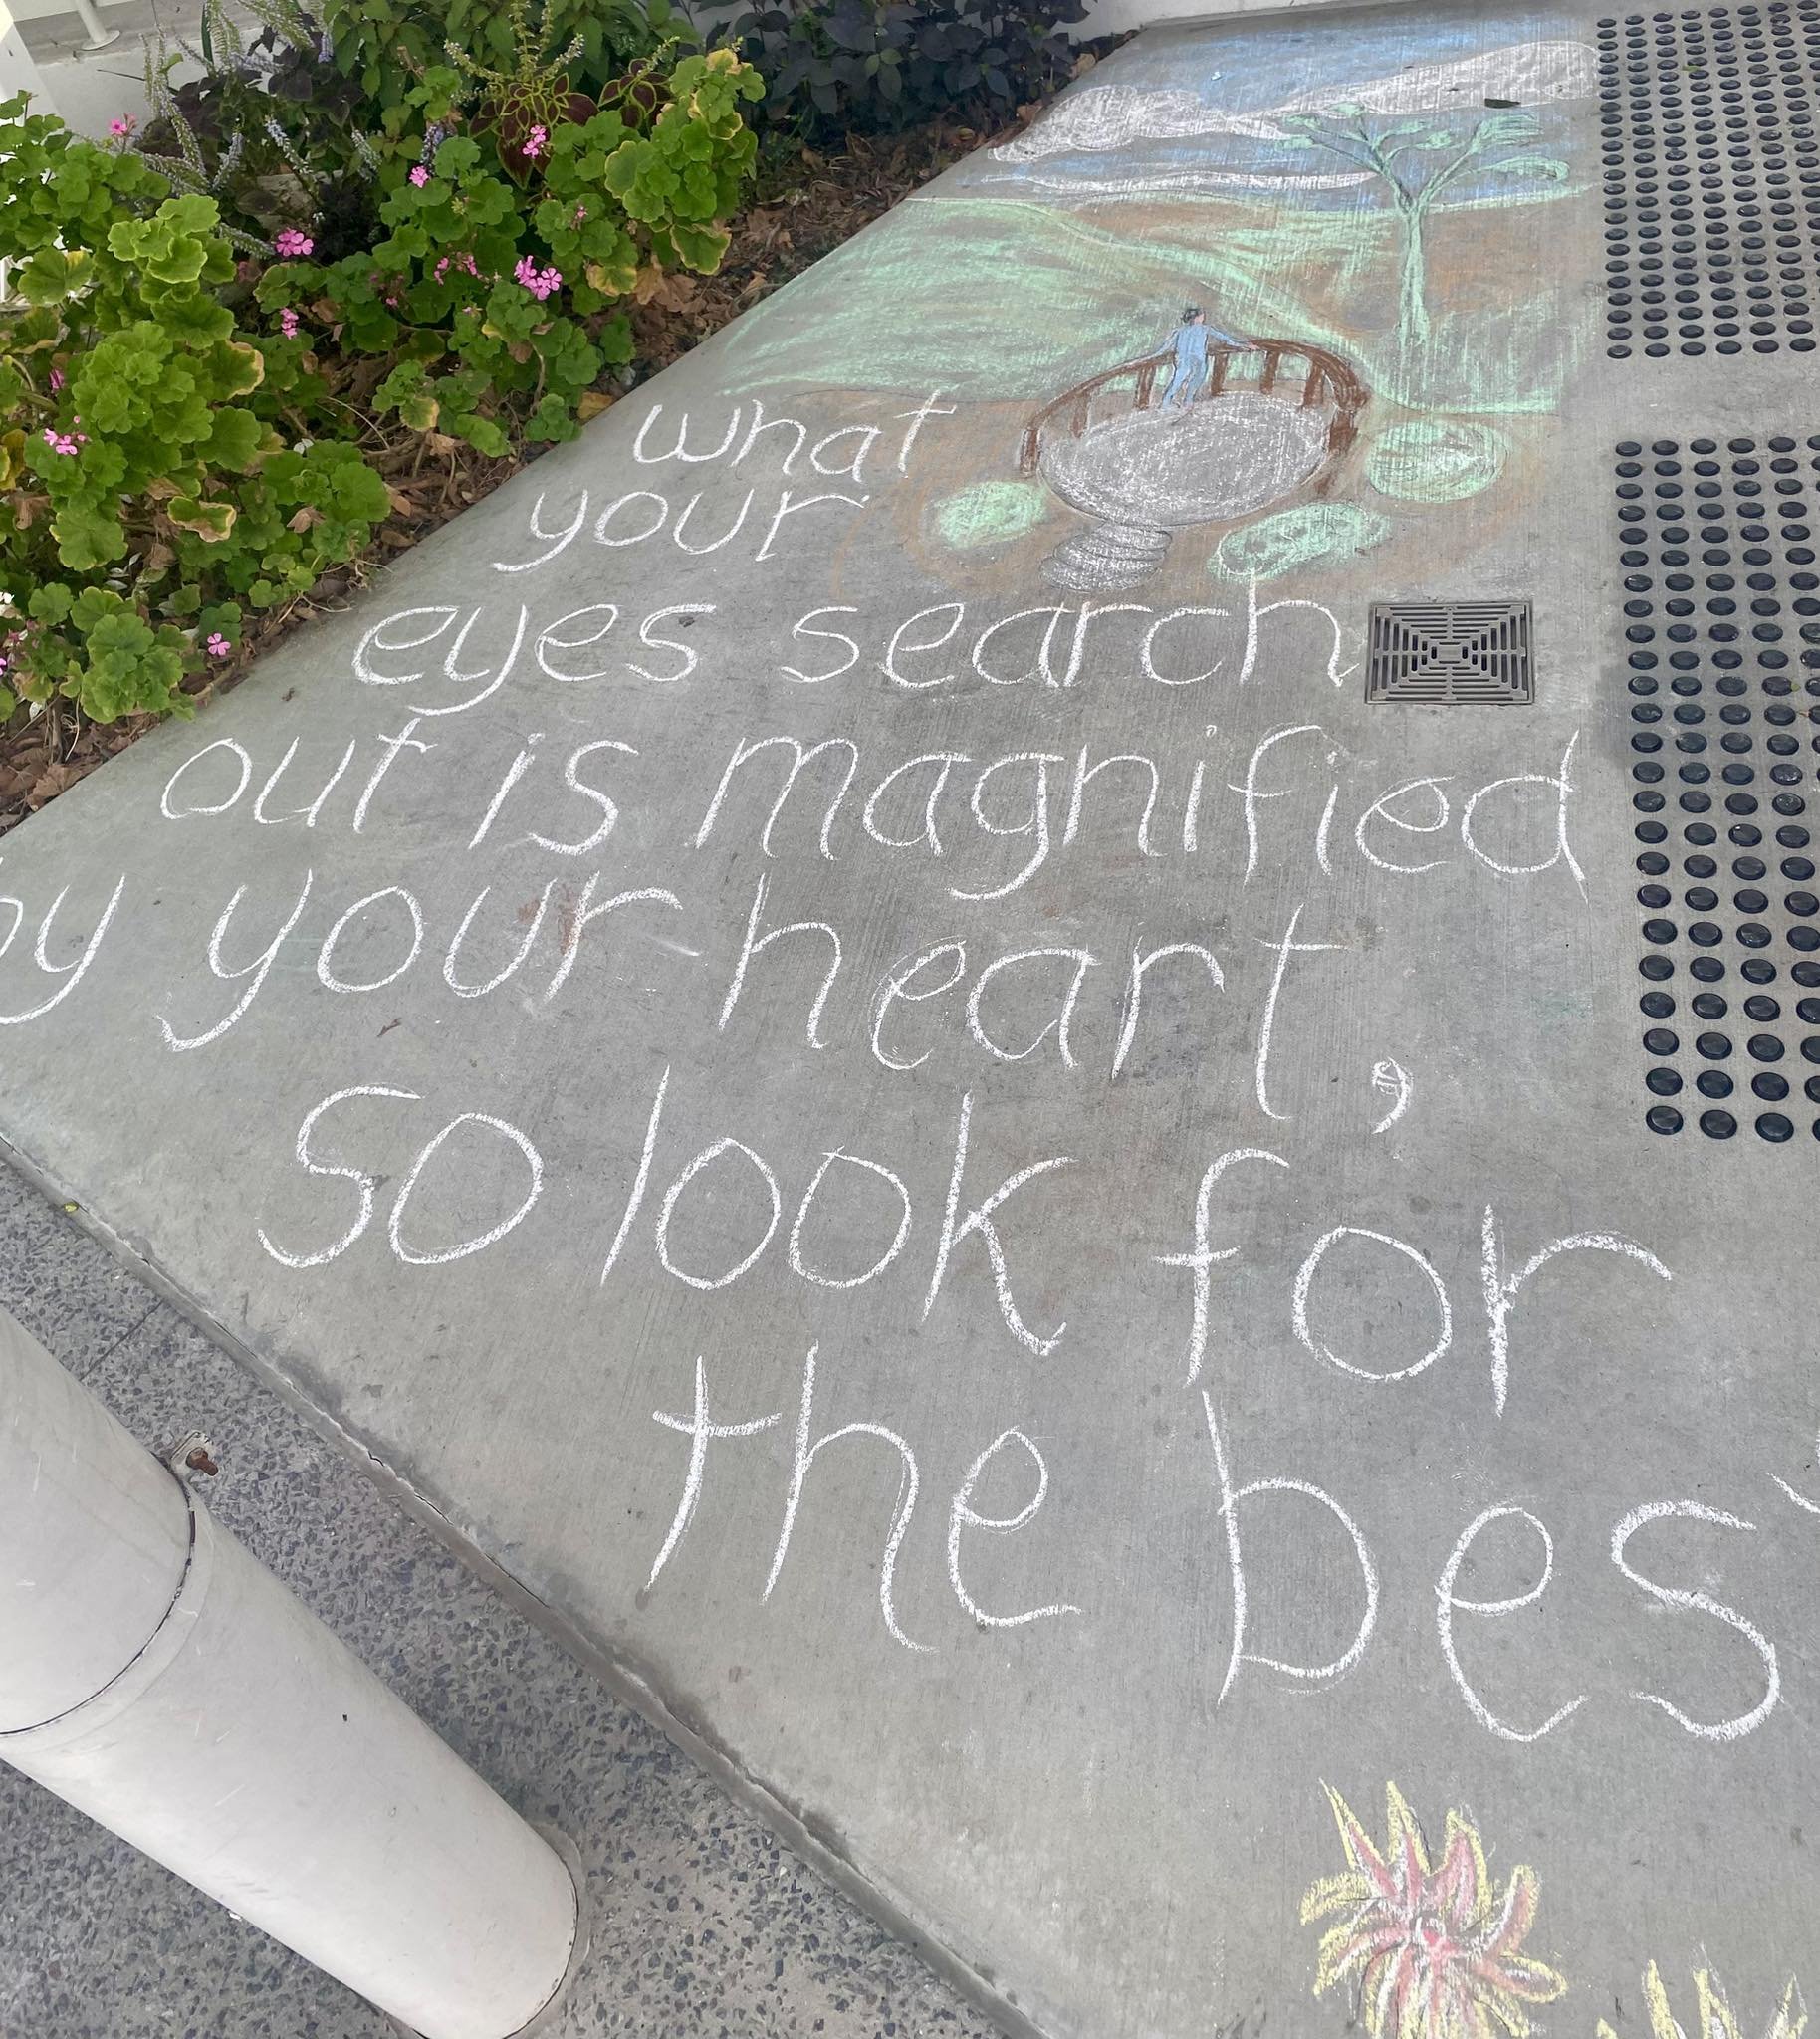 what
your
eyes search
out is magnified
by your heart,
so look for
the best